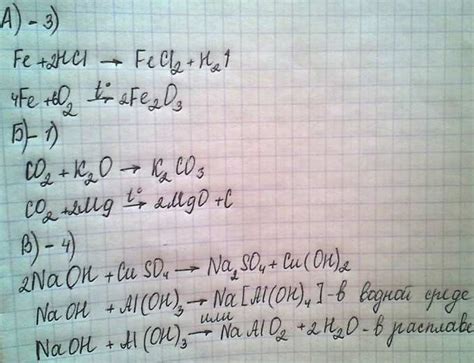 А) - 3)
Fe + 2HCl → FeCl₂ + H₂↑
4Fe + O₂ t°→ 2Fe₂O₃
Б) - 1)
CO₂ + K₂O → K₂CO₃
CO₂ + 2Mg t°→ 2MgO + C
В) - 4)
2NaOH + CuSO₄ → Na₂SO₄ + Cu(OH)₂
NaOH + Al(OH)₃ → Na[Al(OH)₄] - в водной среде
или
NaOH + Al(OH)₃ → NaAlO₂ + 2H₂O - в расплаве